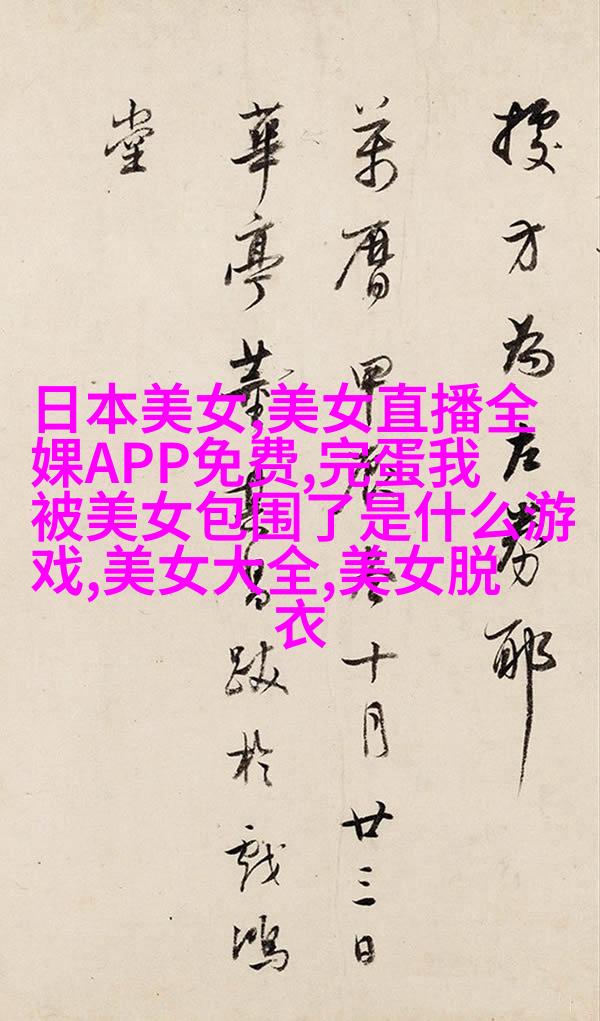 據方為左券耶
萬曆甲辰冬十月廿三日
華亭董其昌跋於戲鴻
堂
日本美女,美女直播全
婐APP免费,完蛋我
被美女包围了是什么游
戏,美女大全,美女脱
衣